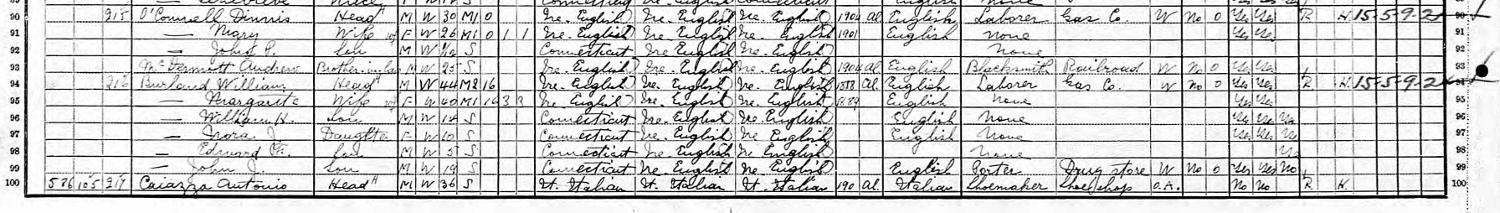 90 215 O'Connell Dinnis Head M W 30 M1 0 Ire. English Ire. English Ire. English 1904 Al. English Laborer Gas Co. W No 0 Yes Yes R H. 15-5-9-2 90
91 — Mary Wife F W 26 M1 0 1 1 Ire. English Ire. English Ire. English 1901 English None Yes Yes 91
92 — John P. Son M W S Connecticut Ire. English Ire. English None 92
93 McDermott Andrew Brother in law M W 25 S Ire. English Ire. English Ire. English 1904 Al English Blacksmith Railroad W No 0 Yes Yes 93
94 216 Burland William Head M W 44 M2 16 Ire. English Ire. English Ire. English 1888 Al. English Laborer Gas Co. W No 0 Yes Yes R H. 15-5-9-2 94
95 — Margarite Wife F W 40 M1 16 3 3 Ire. English Ire. English Ire. English English None Yes Yes 95
96 — William H. Son M W 14 S Connecticut Ire. English Ire. English English None Yes Yes No 96
97 — Nora J. Daughter F W 10 S Connecticut Ire. English Ire. English English None Yes Yes No 97
98 — Edward Son M W 5 S Connecticut Ire. English Ire. English None No 98
99 — John J. Son M W 19 S Connecticut Ire. English Ire. English English Porter Drug store W No 0 Yes Yes No 99
100 586 105 217 Caiazza Antonio Head M W 36 S It. Italian It. Italian It. Italian 190 Al. Italian Shoemaker Shoe shop O.A. No No R H. 100